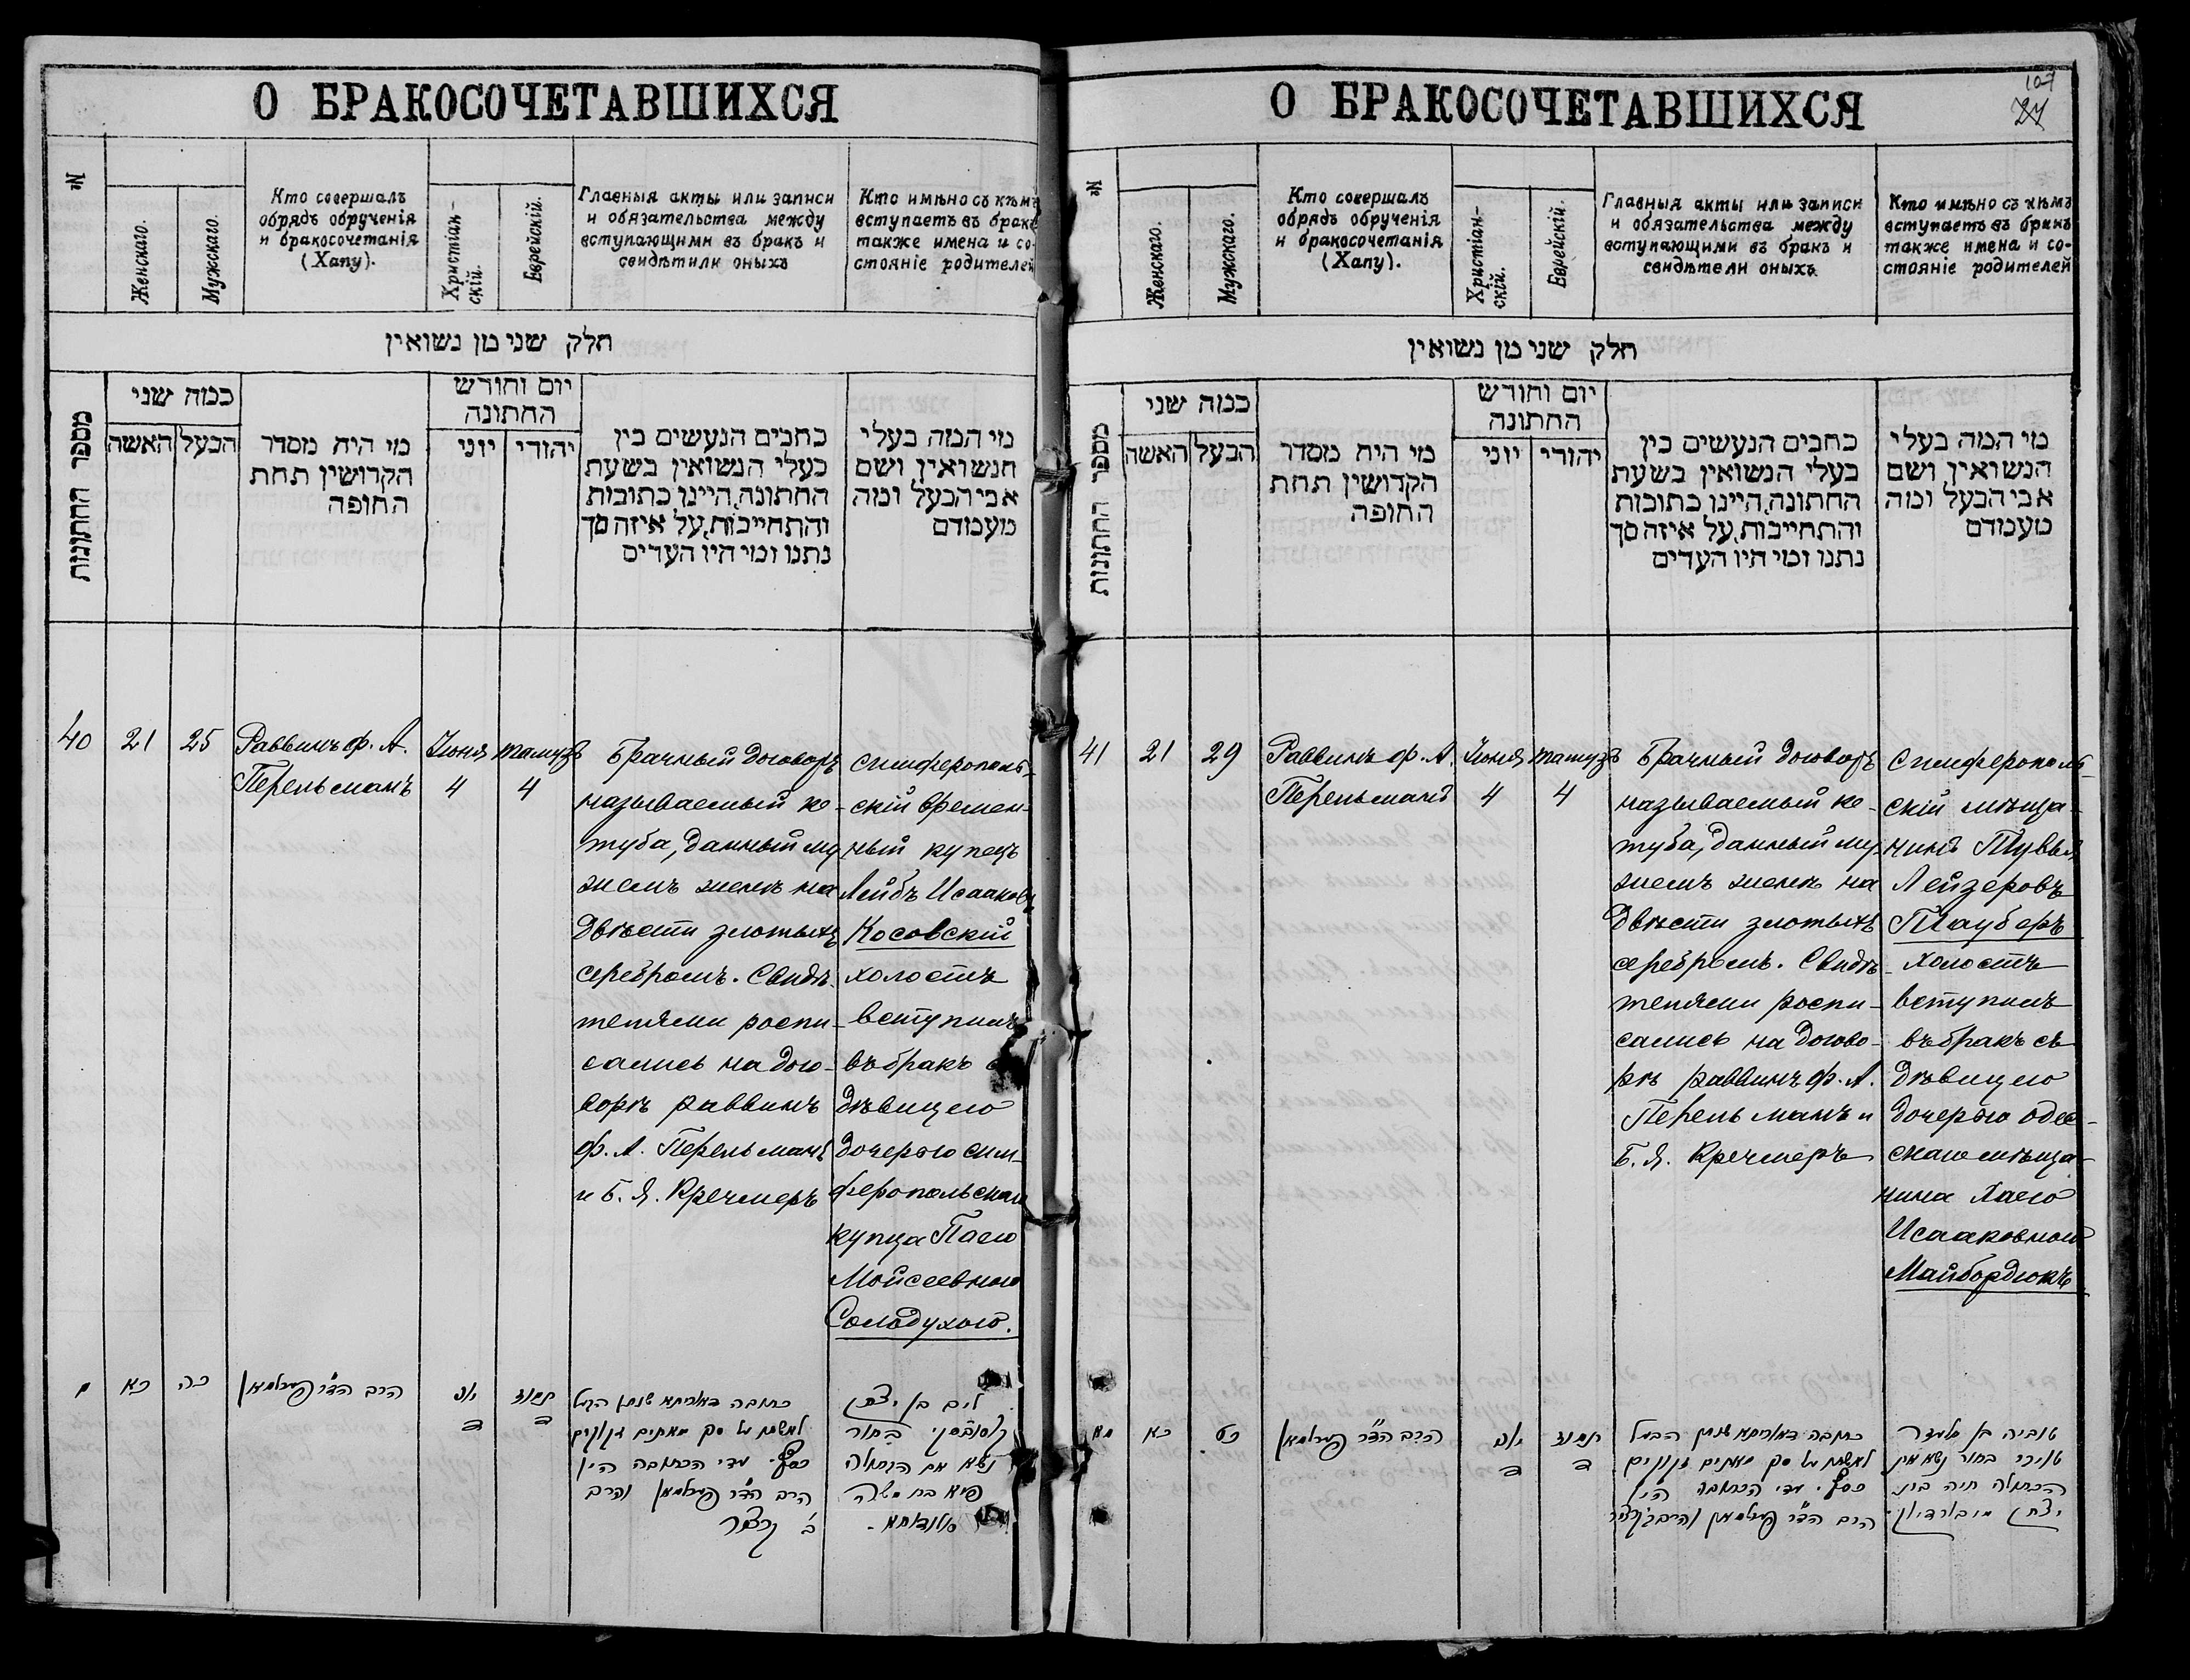 О БРАКОСОЧЕТАВШИХСЯ
№
Женскаго.
Мужскаго.
Кто совершалъ
обрядъ обрученія
и бракосочетанія
(Хапу).
Христіан-
скій.
Еврейскій.
Главныя акты или записи
и обязательства между
вступающими въ бракъ и
свидѣтили оныхъ
Кто имѣно съ кѣмъ
вступаетъ въ бракъ
также имена и со-
стояніе родителей
חלק שני מן נשואין
מספר החתונות
כמה שני
האשה
הבעל
מי היה מסדר
הקדושין תחת
החופה
יום וחודש
החתונה
יוני
יהודי
כתבים הנעשים בין
בעלי הנשואין בשעת
החתונה, היינו כתובות
והתחייבות, על איזה סך
נתנו ומי היו העדים
מי המה בעלי
הנשואין ושם
אבי הבעל ומה
מעמדם
40
21
25
Раввинъ ф. А.
Перельманъ
Іюня
4
тамузъ
4
Брачный договоръ
называемый ке-
туба, данный му
жемъ женѣ на
двѣсти злотыхъ
серебромъ. Свидѣ-
телями роспи-
сались на дого-
ворѣ раввинъ
ф. А. Перельманъ
и Б. Я. Кречмеръ
симферополь-
скій времен-
ный купецъ
Лейбъ Исааковъ
Косовскій
холостъ
вступилъ
въ бракъ
дѣвицею
дочерью сим-
феропольскаго
купца Пасею
Мойсеевною
Солодухою.
מ
כא
כה
הרב הד"ר פערלמאן
יוני
ד
תמוז
ד
כתובה דאוריתא שנתן הבעל
לאשתו על סך מאתים זקוקים
כסף. עדי הכתובה היו
הרב הד"ר פערלמאן והרב
ב' קרצמר
ליב בן יצחק
קוסובסקי בחור
נשא את הבתולה
פיסא בת משה
סולודוחא.
О БРАКОСОЧЕТАВШИХСЯ
107
№
Женскаго.
Мужскаго.
Кто совершалъ
обрядъ обрученія
и бракосочетанія
(Хапу).
Христіан-
скій.
Еврейскій.
Главныя акты или записи
и обязательства между
вступающими въ бракъ и
свидѣтели оныхъ.
Кто имѣно съ кѣмъ
вступаетъ въ бракъ
также имена и со-
стояніе родителей
חלק שני מן נשואין
מספר החתונות
כמה שני
האשה
הבעל
מי היה מסדר
הקדושין תחת
החופה
יום וחודש
החתונה
יוני
יהודי
כתבים הנעשים בין
בעלי הנשואין בשעת
החתונה, היינו כתובות
והתחייבות, על איזה סך
נתנו ומי היו העדים
מי המה בעלי
הנשואין ושם
אבי הבעל ומה
מעמדם
41
21
29
Раввинъ ф. А.
Перельманъ
Іюня
4
тамузъ
4
Брачный договоръ
называемый ке-
туба, данный му
жемъ женѣ на
двѣсти злотыхъ
серебромъ. Свидѣ-
телями роспи-
сались на догово-
рѣ раввинъ ф. А.
Перельманъ и
Б. Я. Кречмеръ
Симферополь-
скій мѣща-
нинъ Тувья
Лейзеровъ
Тауберъ
холостъ
вступилъ
въ бракъ съ
дѣвицею
дочерью одес-
скаго мѣща-
нина Хаею
Исааковною
Майбордюкъ
מא
כא
כט
הרב הד"ר פערלמאן
יוני
ד
תמוז
ד
כתובה דאוריתא שנתן הבעל
לאשתו על סך מאתים זקוקים
כסף. עדי הכתובה היו
הרב הד"ר פערלמאן והרב ב' קרצמר
טוביה בן אלעזר
בחור נשא את
הבתולה חיה בת
יצחק מיבורדיוק.